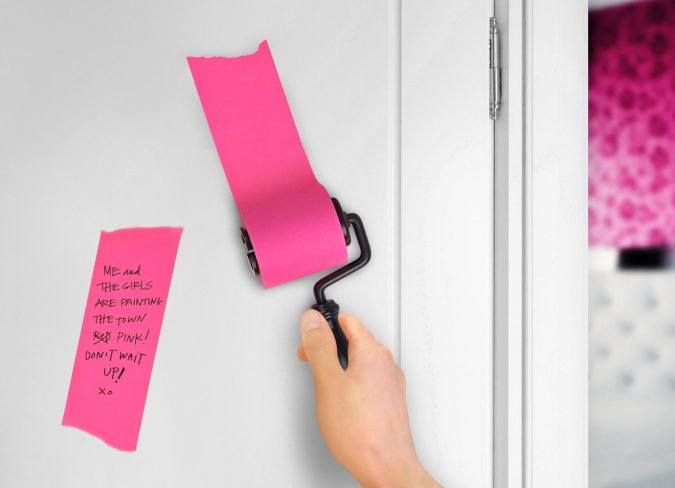 ME and
THE GIRLS
ARE PAINTING
THE TOWN
RED PINK!
DON'T WAIT
UP!
xo